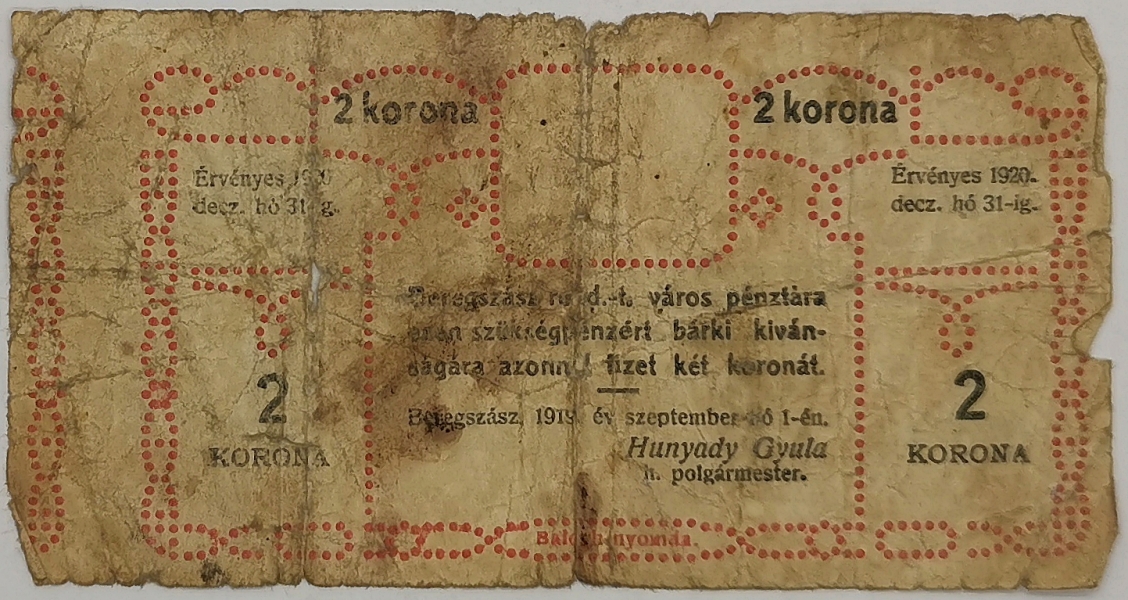 2 korona
2 korona
Érvényes
decz. hó 31-ig.
Érvényes 1920.
decz. hó 31-ig.
Beregszász r. t. város pénztára
ezen szükségpénzért bárki kiván-
ságára azonnal fizet két koronát.
Beregszász, 1919. év szeptember hó 1-én.
Hunyady Gyula
h. polgármester.
2
KORONA
2
KORONA
nyomda.